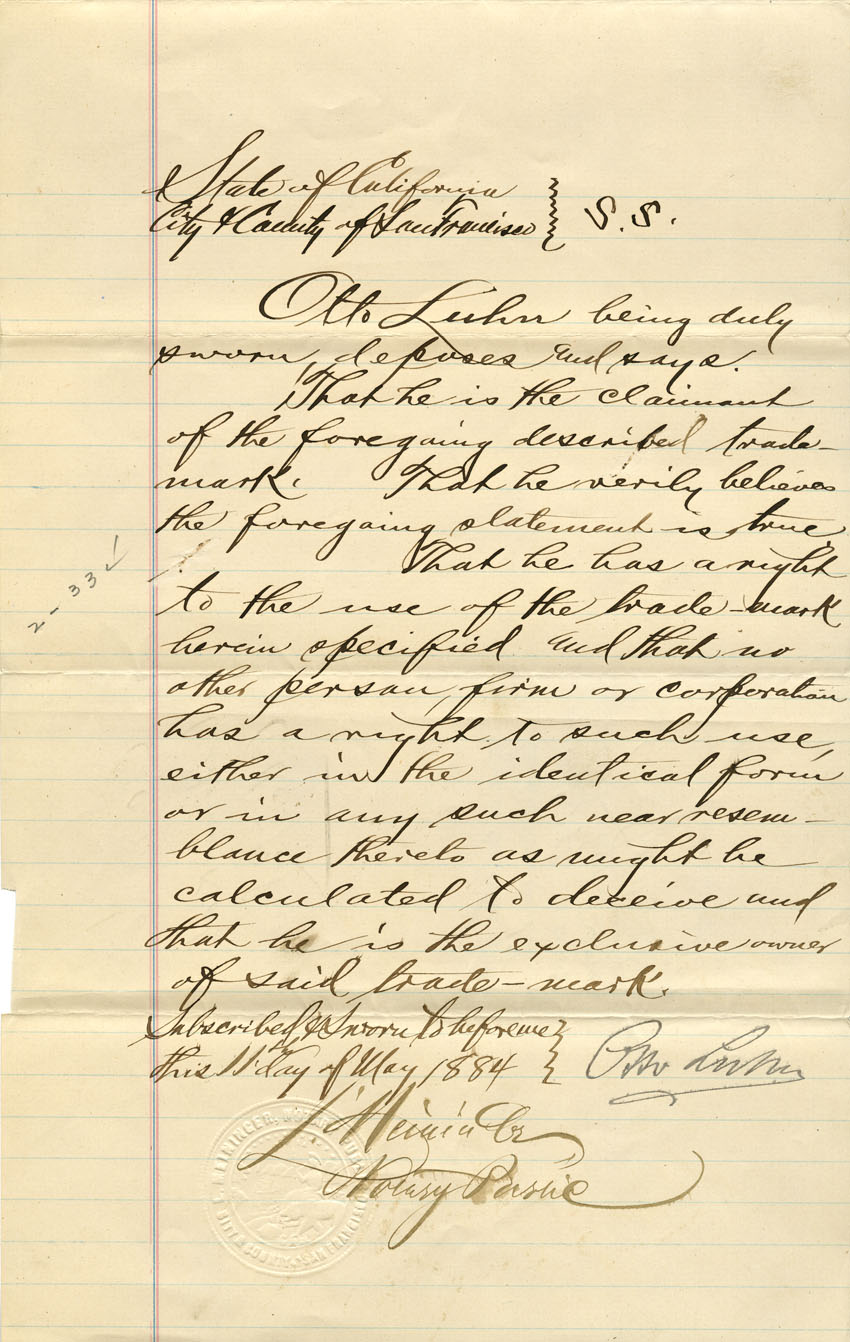 State of California
City & County of San Francisco } S.S.
Otto Luhn being duly
sworn, deposes and says.
That he is the claimant
of the foregoing described trade-
mark. That he verily believes
the foregoing statement is true.
That he has a right
to the use of the trade-mark
herein specified and that no
other person, firm or corporation
has a right to such use,
either in the identical form
or in any such near resem-
blance thereto as might be
calculated to deceive and
that he is the exclusive owner
of said trade-mark.
Subscribed & Sworn to before me
this 11 day of May 1884 } Otto Luhn
Notary Public
CITY & COUNTY SAN FRANCISCO
2-33